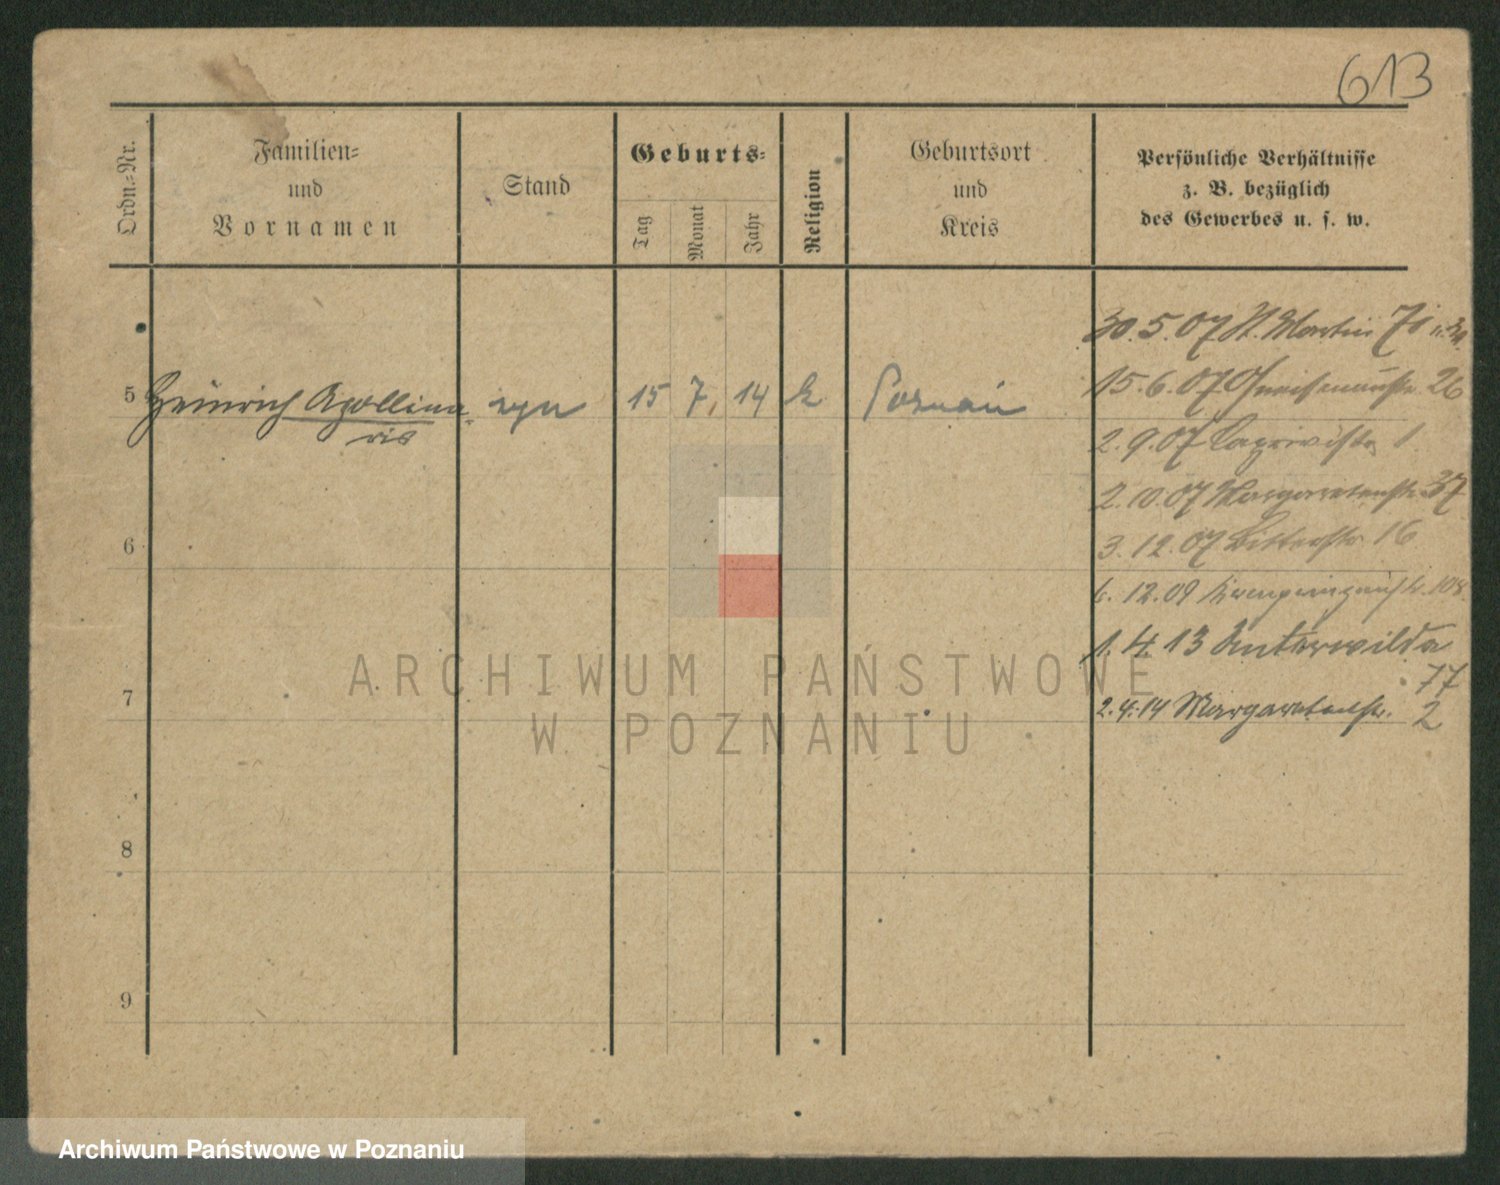 613
Ordn.-Nr.
Familien-
und
Vornamen
Stand
Geburts-
Tag
Monat
Jahr
Religion
Geburtsort
und
Kreis
Persönliche Verhältnisse
z. B. bezüglich
des Gewerbes u. s. w.
30.5.07 St. Martin
15.6.07 Gneisenaustr. 26
5 Heinrich Apollina-
ris
syn 15 7. 14 k Poznań
2.9.07 Caprivistr. 1
2.10.07 Margaretenstr. 37
6
3.12.07 Bitterstr. 16
6.12.09
1.4.13 Unterwilda
77
7
2.4.14 Margaretenstr. 2
8
9
ARCHIWUM PAŃSTWOWE
W POZNANIU
Archiwum Państwowe w Poznaniu